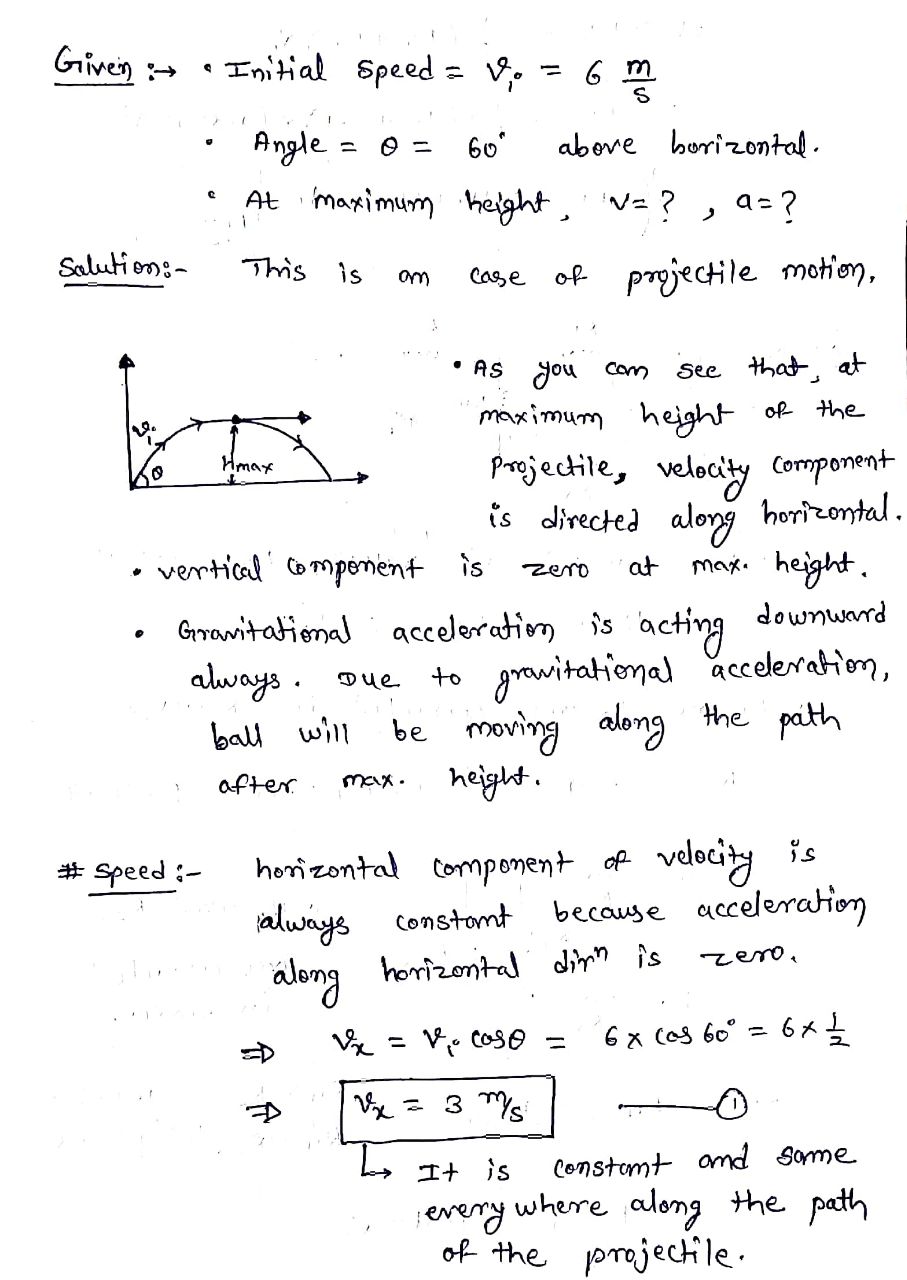 Given :→ • Initial speed = vᵢ = 6 m/s
• Angle = θ = 60° above horizontal.
• At maximum height, v = ? , a = ?
Solution:- This is an case of projectile motion,
• As you can see that, at
maximum height of the
projectile, velocity component
is directed along horizontal.
vᵢ
θ
Hmax
• vertical component is zero at max. height.
• Gravitational acceleration is acting downward
always. Due to gravitational acceleration,
ball will be moving along the path
after max. height.
# Speed :- horizontal component of velocity is
always constant because acceleration
along horizontal dirⁿ is zero.
⇒ vₓ = vᵢ cosθ = 6 × cos 60° = 6 × 1/2
⇒ vₓ = 3 m/s —— ①
↳ It is constant and same
every where along the path
of the projectile.